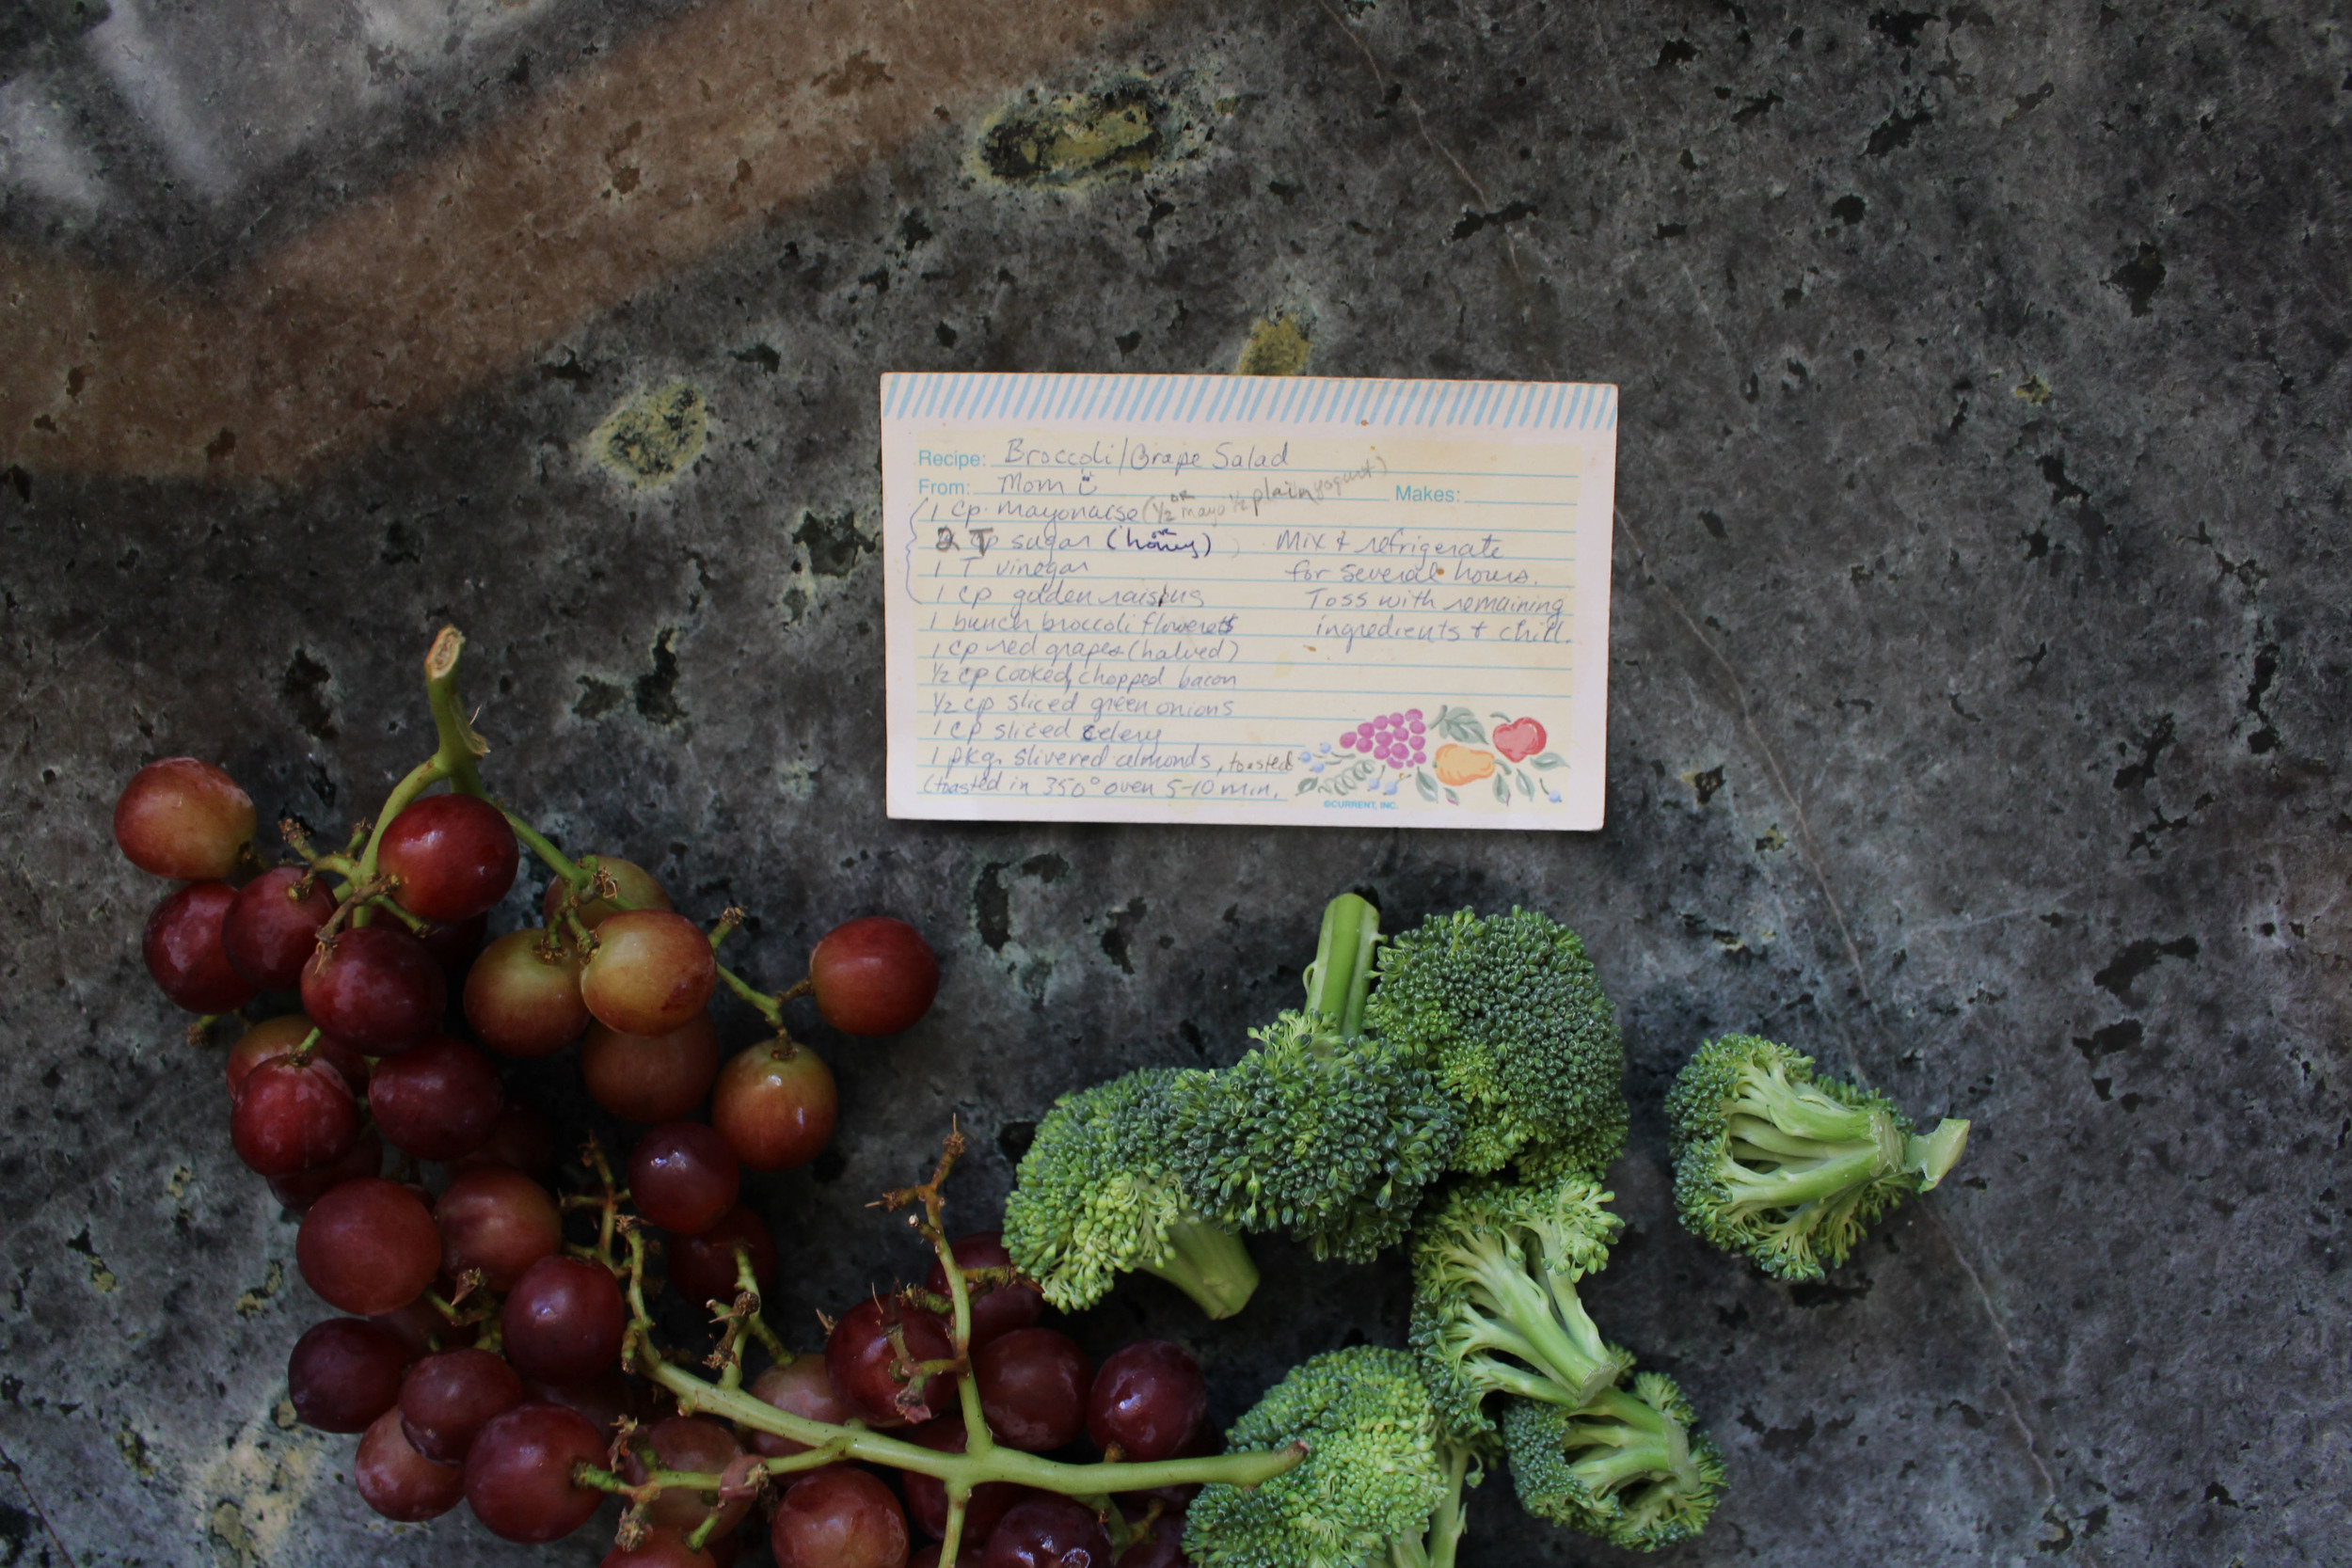 Recipe: Broccoli/Grape Salad
From: Mom Makes:
1 cp. mayonaise (or ½ mayo ½ plain yogurt)
2 T sugar (or honey)
1 T vinegar
1 cp golden raisins
1 bunch broccoli flowerets
1 cp red grapes (halved)
½ cp cooked, chopped bacon
½ cp sliced green onions
1 cp sliced celery
1 pkg. slivered almonds, toasted
(toasted in 350° oven 5-10 min.
Mix & refrigerate
for several hours.
Toss with remaining
ingredients & chill.
©CURRENT, INC.